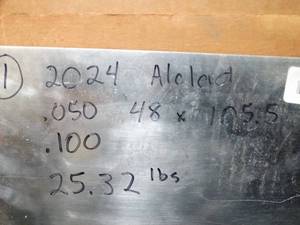 1 2024 Alclad
.050 48 x 105.5
.100
25.32 lbs